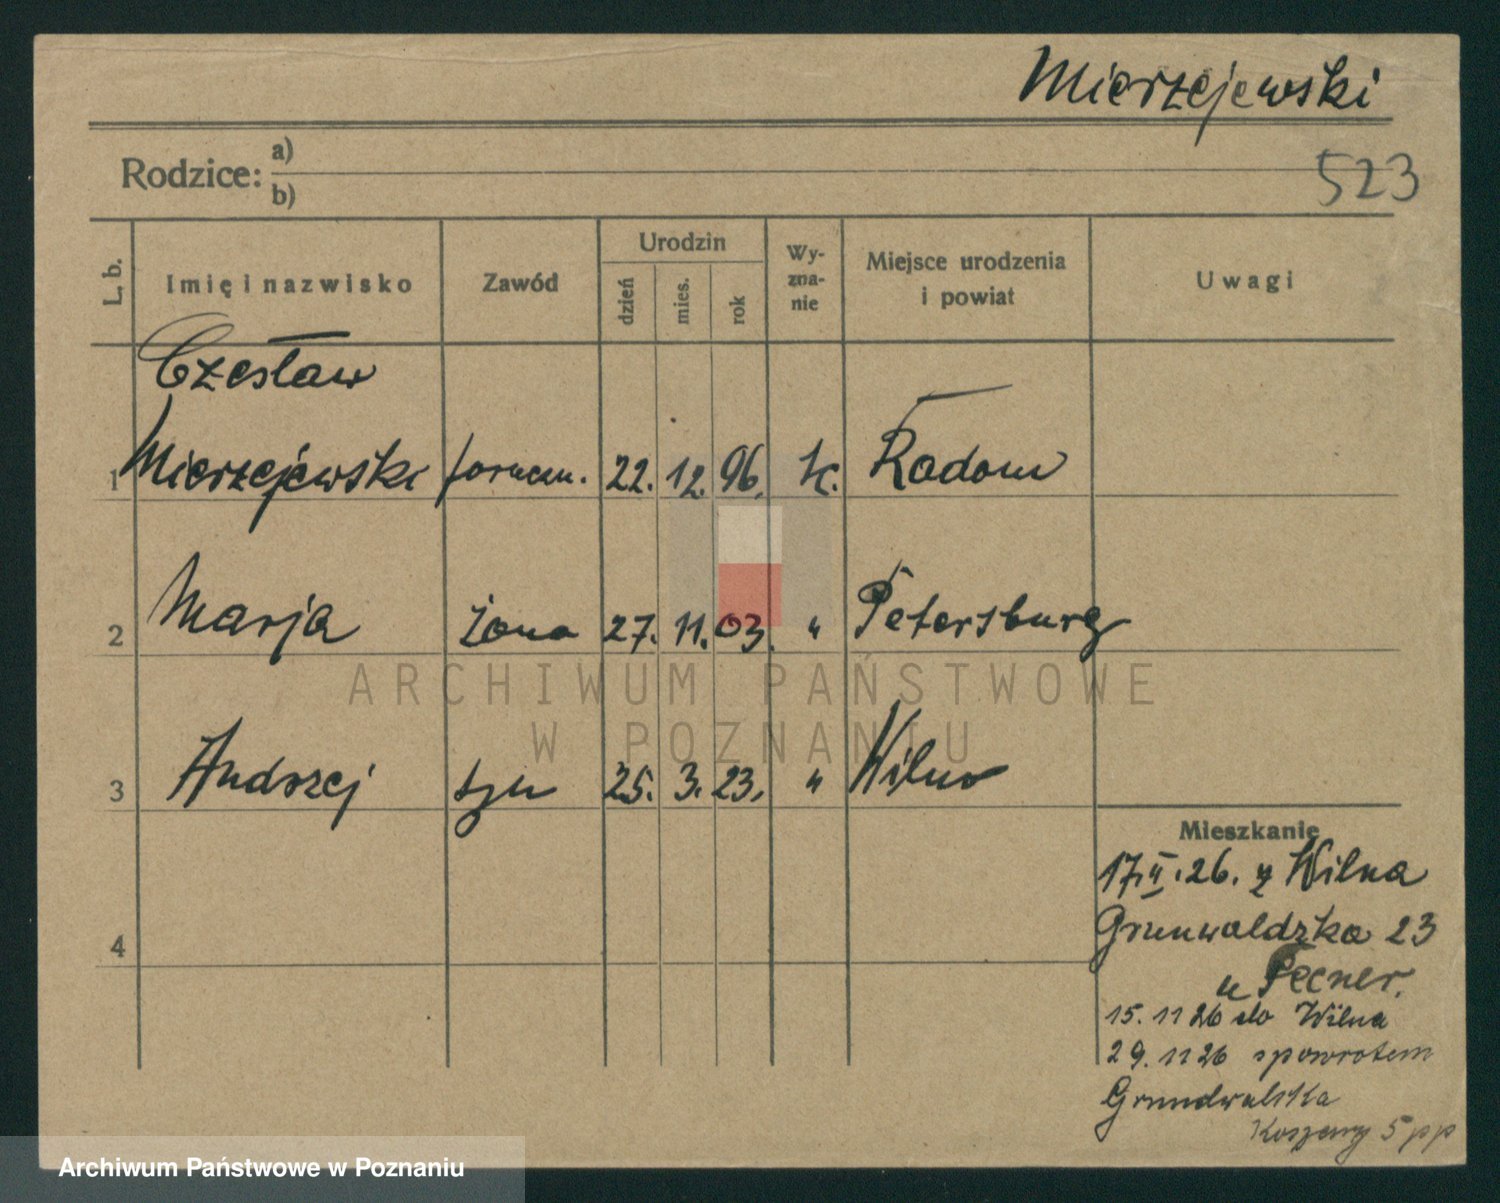 Mierzejewski
Rodzice: a)
b)
523
L. b.
Imię i nazwisko
Zawód
Urodzin
dzień
mies.
rok
Wy-
zna-
nie
Miejsce urodzenia
i powiat
Uwagi
Czesław
1 Mierzejewski poruczn. 22. 12. 96. k. Radom
2 Marja żona 27. 11. 03. " Petersburg
3 Andrzej syn 25. 3. 23. " Wilno
4
Mieszkanie
17.II.26. z Wilna
Grunwaldzka 23
u Pecner.
15. 11 26 do Wilna
29. 11 26 spowrotem
Grundwalska
Koszary 5 pp
ARCHIWUM PAŃSTWOWE
W POZNANIU
Archiwum Państwowe w Poznaniu